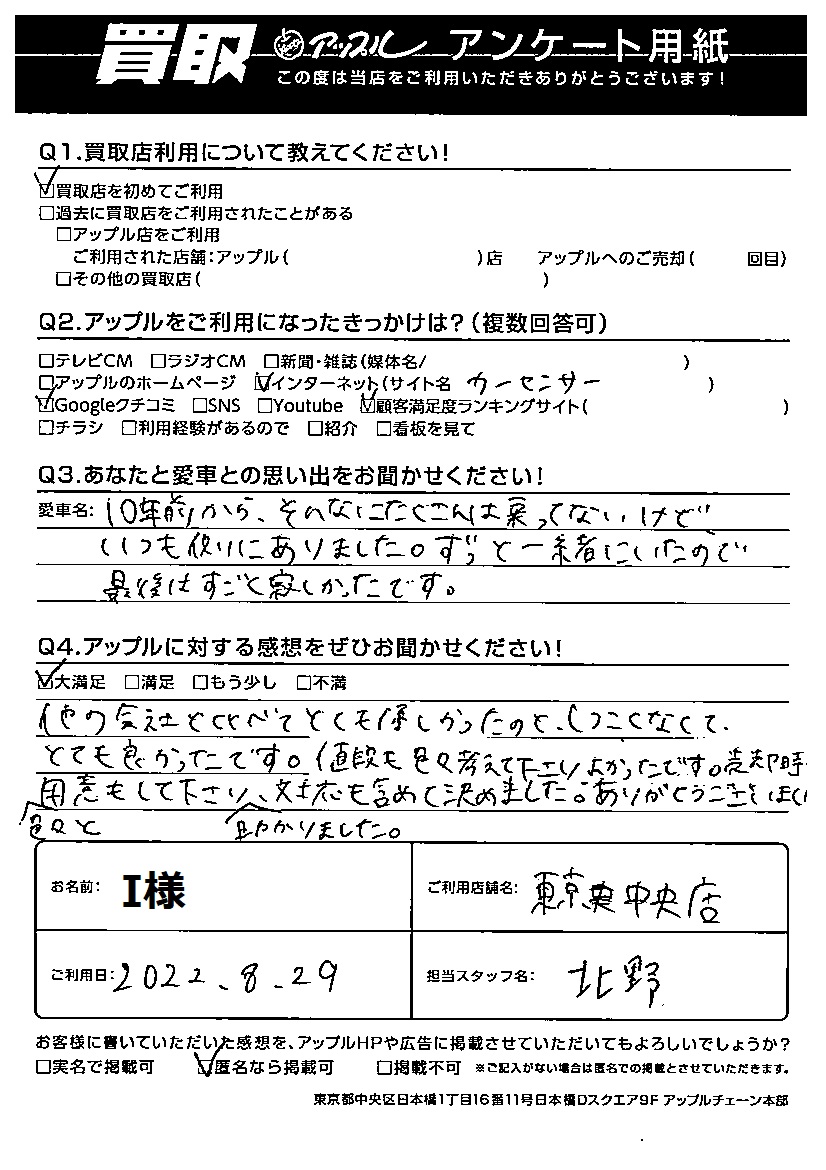 買取 アップル アンケート用紙
この度は当店をご利用いただきありがとうございます!
Q1.買取店利用について教えてください!
☑買取店を初めてご利用
□過去に買取店をご利用されたことがある
□アップル店をご利用
ご利用された店舗:アップル( )店 アップルへのご売却( 回目)
□その他の買取店( )
Q2.アップルをご利用になったきっかけは?(複数回答可)
□テレビCM □ラジオCM □新聞・雑誌(媒体名/ )
□アップルのホームページ ☑インターネット(サイト名 カーセンサー )
☑Googleクチコミ □SNS □Youtube ☑顧客満足度ランキングサイト( )
□チラシ □利用経験があるので □紹介 □看板を見て
Q3.あなたと愛車との思い出をお聞かせください!
愛車名: 10年前から、そんなにたくさんは乗ってないけど
いつも側にありました。ずっと一緒にいたので
最後はすごく寂しかったです。
Q4.アップルに対する感想をぜひお聞かせください!
☑大満足 □満足 □もう少し □不満
他の会社と比べてとても優しかったのと、しつこくなくて、
とても良かったです。値段も色々考えて下さりよかったです。売却時
用意もして下さり、対応も含めて決めました。ありがとうござ
色々と 助かりました。
お名前: I様 ご利用店舗名: 東京中央店
ご利用日: 2022.8.29 担当スタッフ名: 北野
お客様に書いていただいた感想を、アップルHPや広告に掲載させていただいてもよろしいでしょうか?
□実名で掲載可 ☑匿名なら掲載可 □掲載不可 ※ご記入がない場合は匿名での掲載とさせていただきます。
東京都中央区日本橋1丁目16番11号日本橋Dスクエア9F アップルチェーン本部